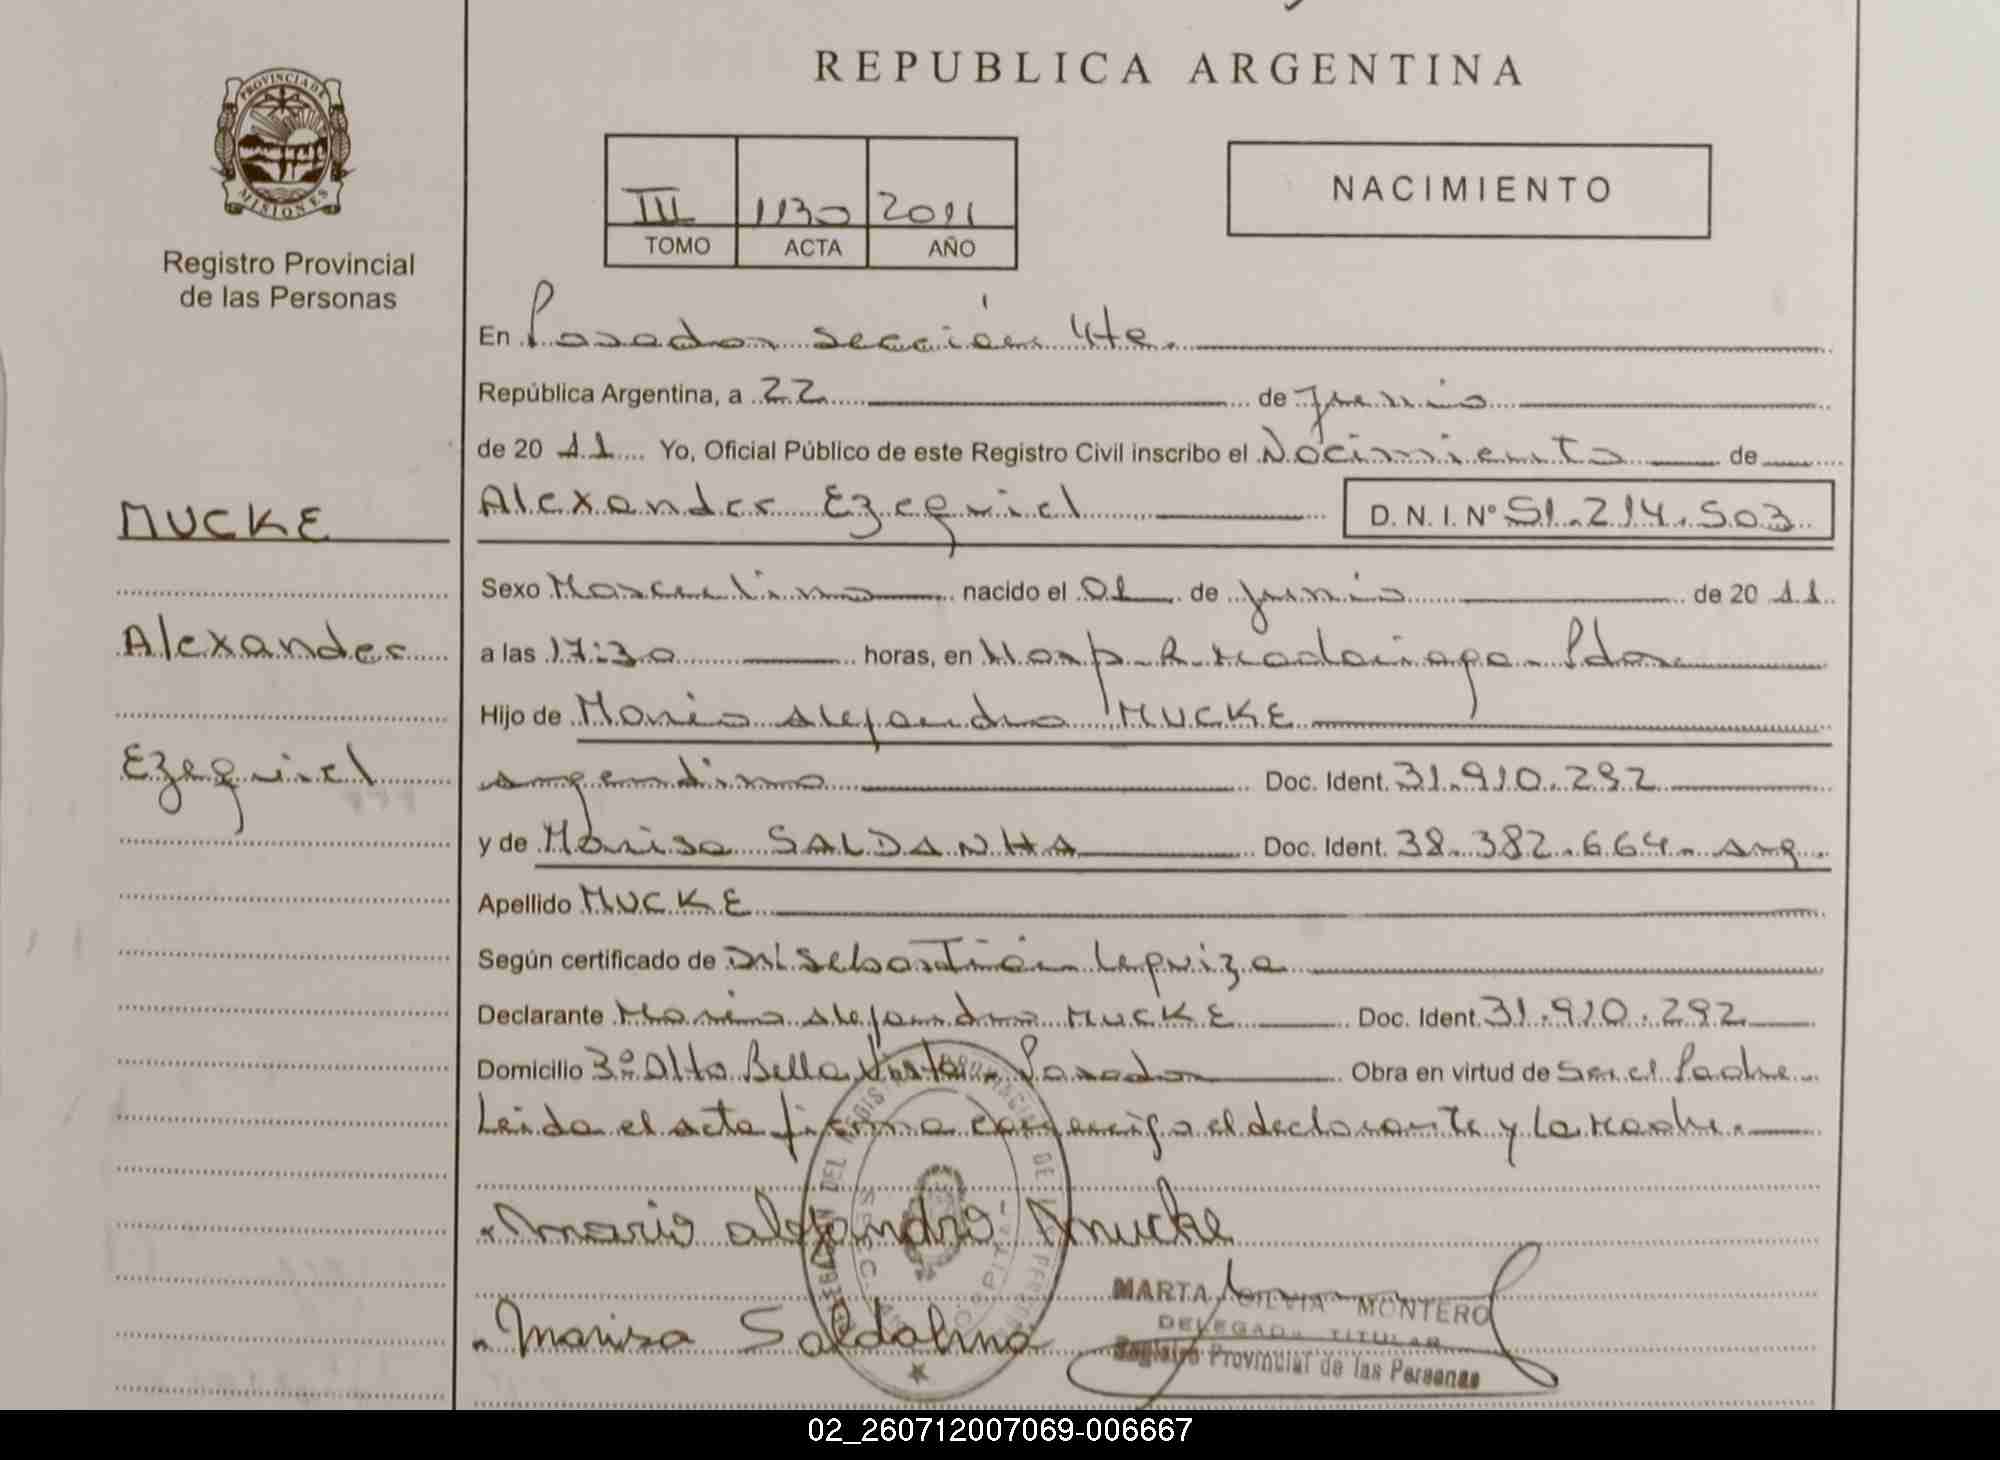 REPUBLICA ARGENTINA
PROVINCIA DE
MISIONES
Registro Provincial
de las Personas
III 1130 2011
TOMO ACTA AÑO
NACIMIENTO
En Posadas sección 4te.
República Argentina, a 22 de junio
de 2011 Yo, Oficial Público de este Registro Civil inscribo el Nacimiento de
MUCKE
Alexander
Ezequiel
Alexander Ezequiel D.N.I. Nº 51.214.503
Sexo Masculino nacido el 01 de junio de 2011
a las 17:30 horas, en Hosp. R. Madariaga Pdas
Hijo de Mario Alejandro MUCKE
argentino Doc. Ident. 31.910.292
y de Marisa SALDANHA Doc. Ident. 38.382.664 - Arg.
Apellido MUCKE
Según certificado de Sebastián
Declarante Mario Alejandro MUCKE Doc. Ident. 31.910.292
Domicilio 3º Alto Bella Vista - Posadas Obra en virtud de Ser el Padre
Leída el acta firma conmigo el declarante y la madre.
Mario alejandro Mucke
Marisa Saldahna
MARTA SILVIA MONTERO
DELEGADA TITULAR
Registro Provincial de las Personas
02_260712007069-006667